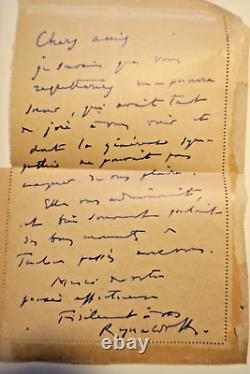 Chers amis
je savais que vous
regretteriez ma pauvre
sœur, qui avait tant
de joie à vous voir et
dont la généreuse sym-
pathie ne pouvait pas
manquer de vous plaire.
Elle vous admirait,
et bien souvent parlait
des bons moments de
passés avec vous.
Merci de votre
pensée affectueuse
Fidèlement à vous